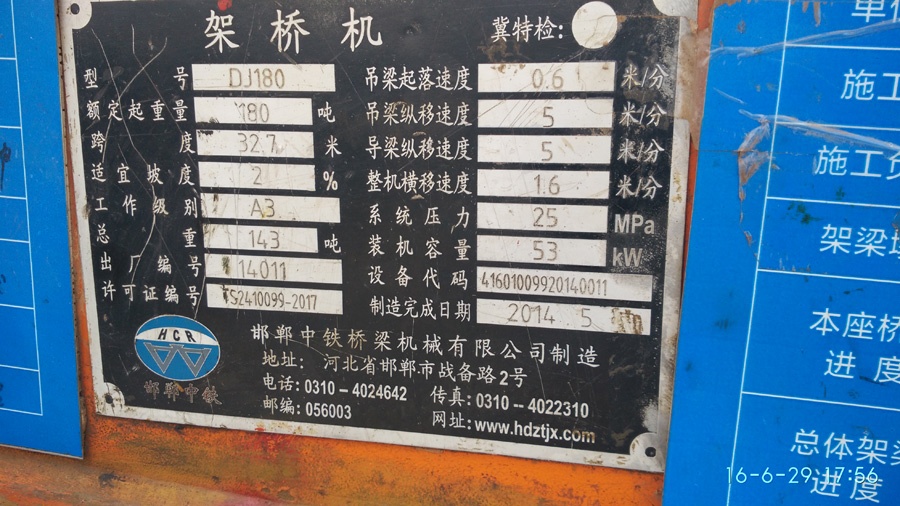 架桥机 冀特检:
型号 DJ180 吊梁起落速度 0.6 米/分
额定起重量 180 吨 吊梁纵移速度 5 米/分
跨度 32.7 米 导梁纵移速度 5 米/分
适宜坡度 2 % 整机横移速度 1.6 米/分
工作级别 A3 系统压力 25 MPa
总重 143 吨 装机容量 53 kW
出厂编号 14011 设备代码 41601009920140011
许可证编号 TS2410099-2017 制造完成日期 2014 5
HCR
邯郸中铁
邯郸中铁桥梁机械有限公司制造
地址: 河北省邯郸市战备路2号
电话:0310-4024642 传真:0310--4022310
邮编:056003 网址:www.hdztjx.com
施工
架梁
本座桥
进度
总体架梁
进度
16-6-29 17:56